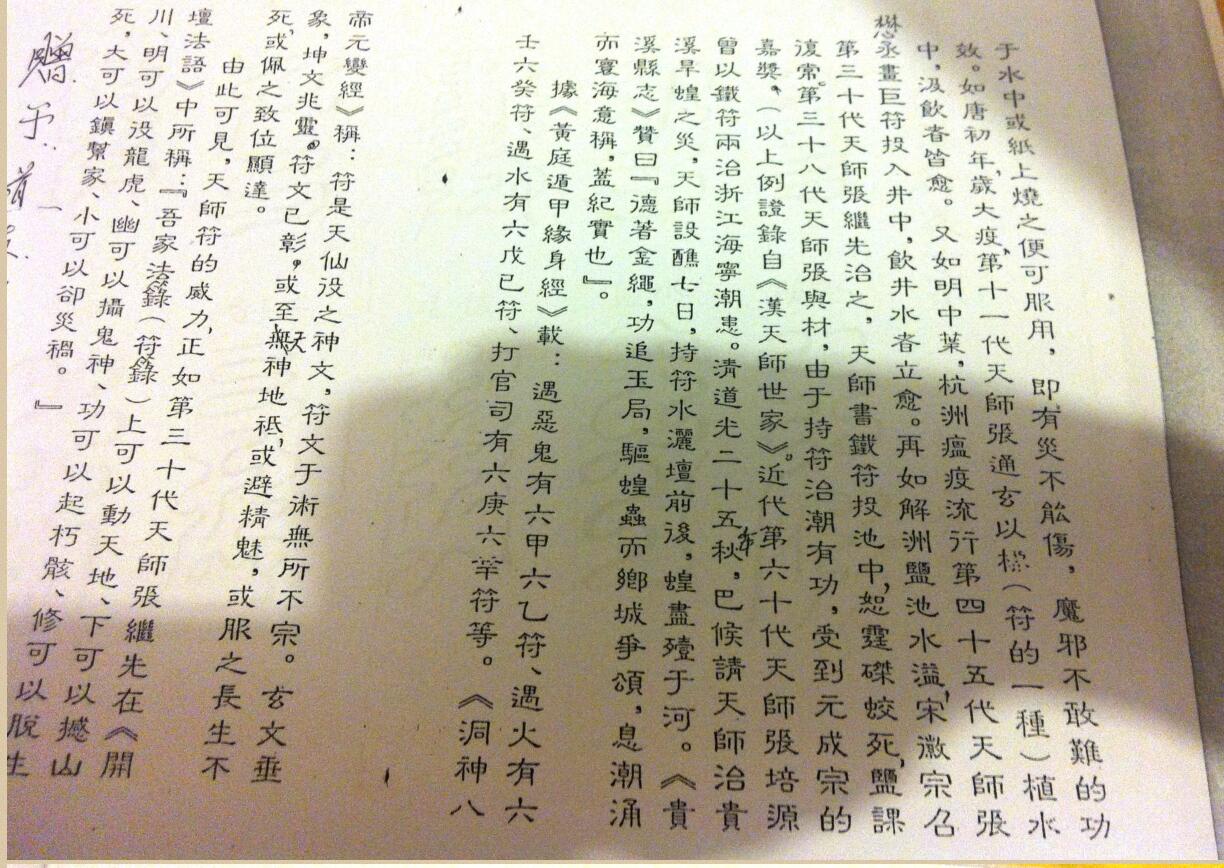 于水中或紙上燒之便可服用，即有災不能傷，魔邪不敢難的功
效。如唐初年，歲大疫，第十一代天師張通玄以標（符的一種）植水
中，汲飲者皆愈。又如明中葉，杭洲瘟疫流行第四十五代天師張
懋丞畫巨符投入井中，飲井水者立愈。再如解洲鹽池水溢，宋徽宗召
第三十代天師張繼先治之，天師書鐵符投池中，恕霆磔蛟死，鹽課
復常。第三十八代天師張與材，由于持符治潮有功，受到元成宗的
嘉獎。（以上例證錄自《漢天師世家》。近代第六十代天師張培源
曾以鐵符兩治浙江海寧潮患。清道光二十五年秋，巴候請天師治貴
溪旱蝗之災，天師設醮七日，持符水灑壇前後，蝗盡殪于河。《貴
溪縣志》贊曰『德著金繩，功追玉局，驅蝗蟲而鄉城爭頌，息潮涌
而寰海意稱，蓋紀實也』。
據《黃庭遁甲緣身經》載：遇惡鬼有六甲六乙符、遇火有六
壬六癸符、遇水有六戊已符、打官司有六庚六辛符等。《洞神八
帝元變經》稱：符是天仙役之神文，符文于術無所不宗。玄文垂
象，坤文兆靈。符文已彰。或至天神地祇，或避精魅，或服之長生不
死，或佩之致位顯達。
由此可見，天師符的威力，正如第三十代天師張繼先在《開
壇法語》中所稱：『吾家法錄（符錄）上可以動天地、下可以撼山
川、明可以役龍虎、幽可以攝鬼神、功可以起朽骸、修可以脫生
死，大可以鎮幫家、小可以卻災禍。』
贈予道一